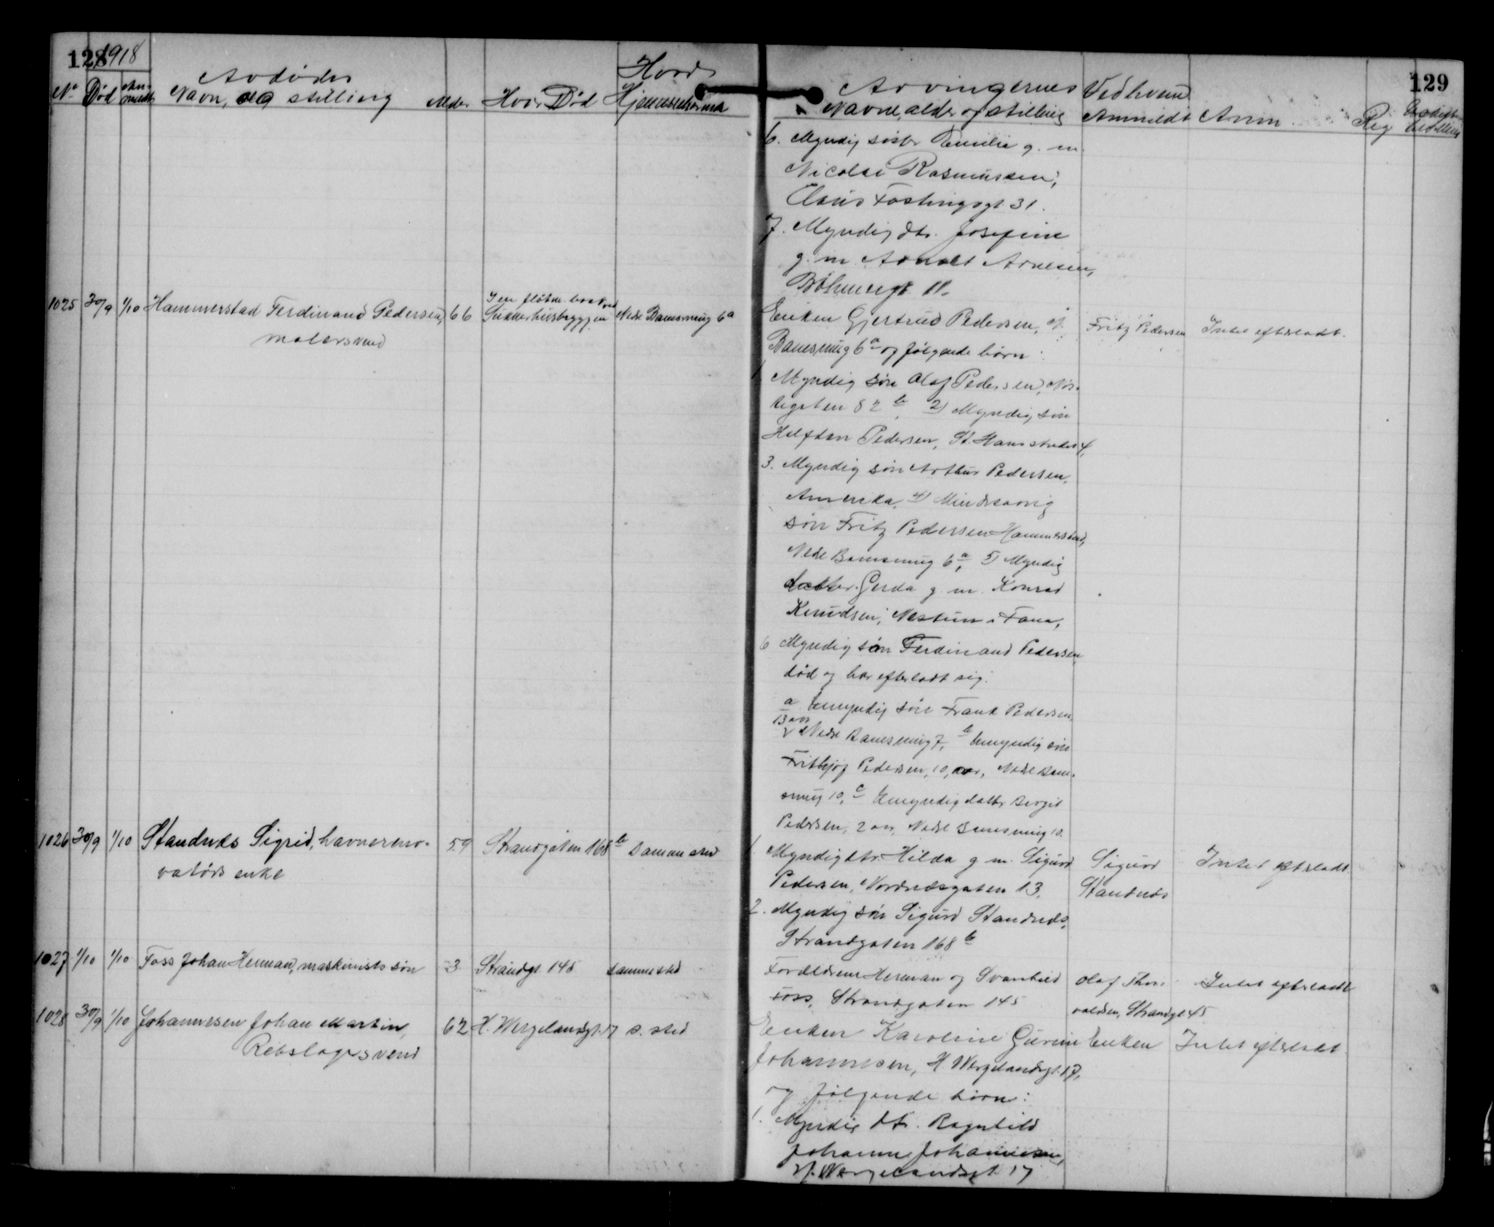 128 1918
Avdødes Hvor
No Død Anmeldt Navn, og stilling Alder Hvor Død Hjemmehørende
1025 30/9 1/10 Hammerstad Ferdinand Pedersen, 66 I en fløtebaat ved Nedre Bamsmug 6a
malersvend
1026 30/9 1/10 Standnæs Sigrid, havnerenovatørs 59 Strandgaten 168b samme sted
enke
1027 1/10 1/10 Foss Johan Herman, maskinists søn 3 Strandgt. 145 samme sted
1028 30/9 1/10 Johannesen Johan Martin, 62 H. Wergelandsgt. 17 s. sted
Rebslagersvend
129
Arvingernes Ved hvem
Navne, alder og stilling Anmeldt Anm. Reg
6. Myndig søster Emilie g. m.
Nicolai Rasmussen,
Claus Fastingsgt 31.
7. Myndig dtr. Josefine
g. m. Arnoldt Arnesen,
Enken Gjertrud Pedersen, Fritz Pedersen Intet efterladt.
Bamsmug 6a og følgende børn:
1. Myndig søn Olaf Pedersen,
82b, 2) Myndig søn
Halfdan Pedersen, St. Hansstrædet 4,
3. Myndig søn Arthur Pedersen,
Amerika, 4) Mindreaarig
søn Fritz Pedersen Hammerstad,
Nedre Bamsmug 6a, 5) Myndig
datter Gerda g. m. Konrad
Knudsen, Nestun i Fana,
6 Myndig søn Ferdinand Pedersen
død og har efterladt sig:
a Umyndig søn Frank Pedersen
13 aar Nedre Bamsmug 7, b Umyndig søn
Fritbjof Pedersen, 10 aar, Nedre Bamsmug
10, c Umyndig datter Bergit
Pedersen, 2 aar, Nedre Bamsmug 10
1. Myndig dtr. Hilda g. m. Sigurd Sigurd Intet efterladt
Pedersen, Nordnæsgaten 13, Standnæs
2. Myndig søn Sigurd Standnæs,
Strandgaten 168b
Forældrene Herman og Svanhild Olaf Thorvaldsen, Strandgt 45 Intet efterladt
Foss, Strandgaten 145
Enken Karoline Gurine Enken Intet efterladt
Johannesen, H Wergelandsgt. 17,
og følgende børn:
1. Myndig dtr. Ragnhild
Johanne Johannesen,
H. Wergelandsgt. 17